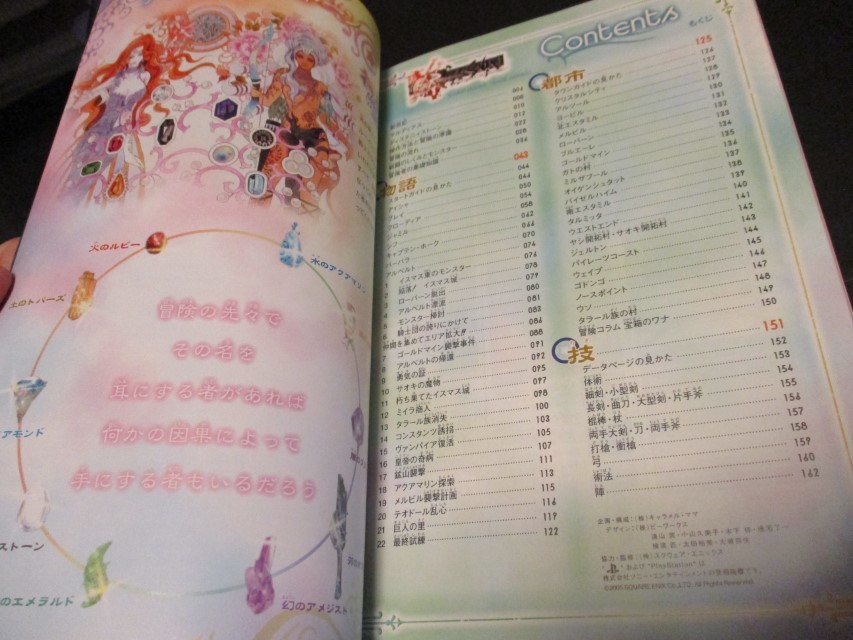 火のルビー
水のアクアマリン
土のトパーズ
冒険の先々で
その名を
耳にする者があれば
何かの因果によって
手にする者もいるだろう
幻のアメジスト
Contents
もくじ
043
物語
スタートガイドの見かた 046
アイシャ 050
グレイ 054
クローディア 058
ジャミル 062
シフ 066
キャプテン・ホーク 070
バーバラ 074
アルベルト 076
1 イスマス東のモンスター 078
2 陥落! イスマス城 079
3 ローバーン脱出 080
4 アルベルト漂流 081
5 モンスター掃討 083
6 騎士団の誇りにかけて 086
仲間を集めてエリア拡大!! 088
7 ゴールドマイン襲撃事件 091
8 アルベルトの帰還 092
9 勇気の証 095
10 サオキの魔物 097
11 朽ち果てたイスマス城 098
12 ミイラ商人 100
13 タラール族消失 103
14 コンスタンツ誘拐 105
15 ヴァンパイア復活 107
16 皇帝の奇病 111
17 鉱山襲撃 113
18 アクアマリン探索 115
19 メルビル襲撃計画 116
20 テオドール乱心 119
21 巨人の里
22 最終試練 122
125
都市
タウンガイドの見かた 126
クリスタルシティ 127
アルツール 128
ヨービル 129
北エスタミル 130
メルビル 131
ローバーン 132
ブルエーレ 133
ゴールドマイン 134
ガトの村 135
ミルザブール 136
オイゲンシュタット 137
バイゼルハイム 138
南エスタミル 139
タルミッタ 140
ウエストエンド 141
ヤシ開拓村・サオキ開拓村 142
ジェルトン 143
パイレーツコースト 144
ウェイプ 145
ゴドンゴ 146
ノースポイント 147
ウソ 148
タラール族の村 149
冒険コラム 宝箱のワナ 150
151
技
データページの見かた 152
体術 153
細剣・小型剣 154
長剣・曲刀・大型剣・片手斧 155
棍棒・杖 156
両手大剣・刀・両手斧 157
打槍・衝槍 158
弓 159
術法 160
陣 162
企画・構成:(株)キャラメル・ママ
デザイン:(株)ビーワークス
協力・監修:(株)スクウェア・エニックス